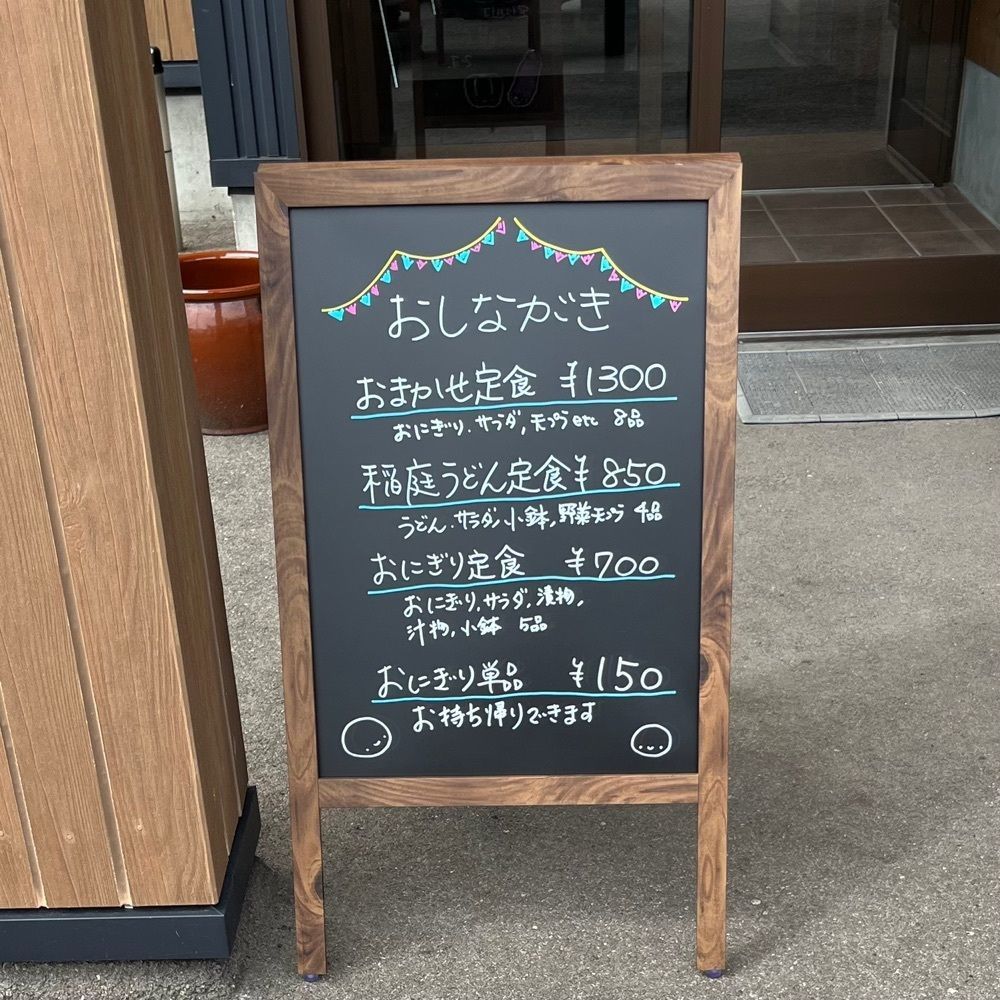 おしながき
おまかせ定食 ¥1300
おにぎり、サラダ、天プラetc 8品
稲庭うどん定食 ¥850
うどん、サラダ、小鉢、野菜天プラ 4品
おにぎり定食 ¥700
おにぎり、サラダ、漬物、
汁物、小鉢 5品
おにぎり単品 ¥150
お持ち帰りできます